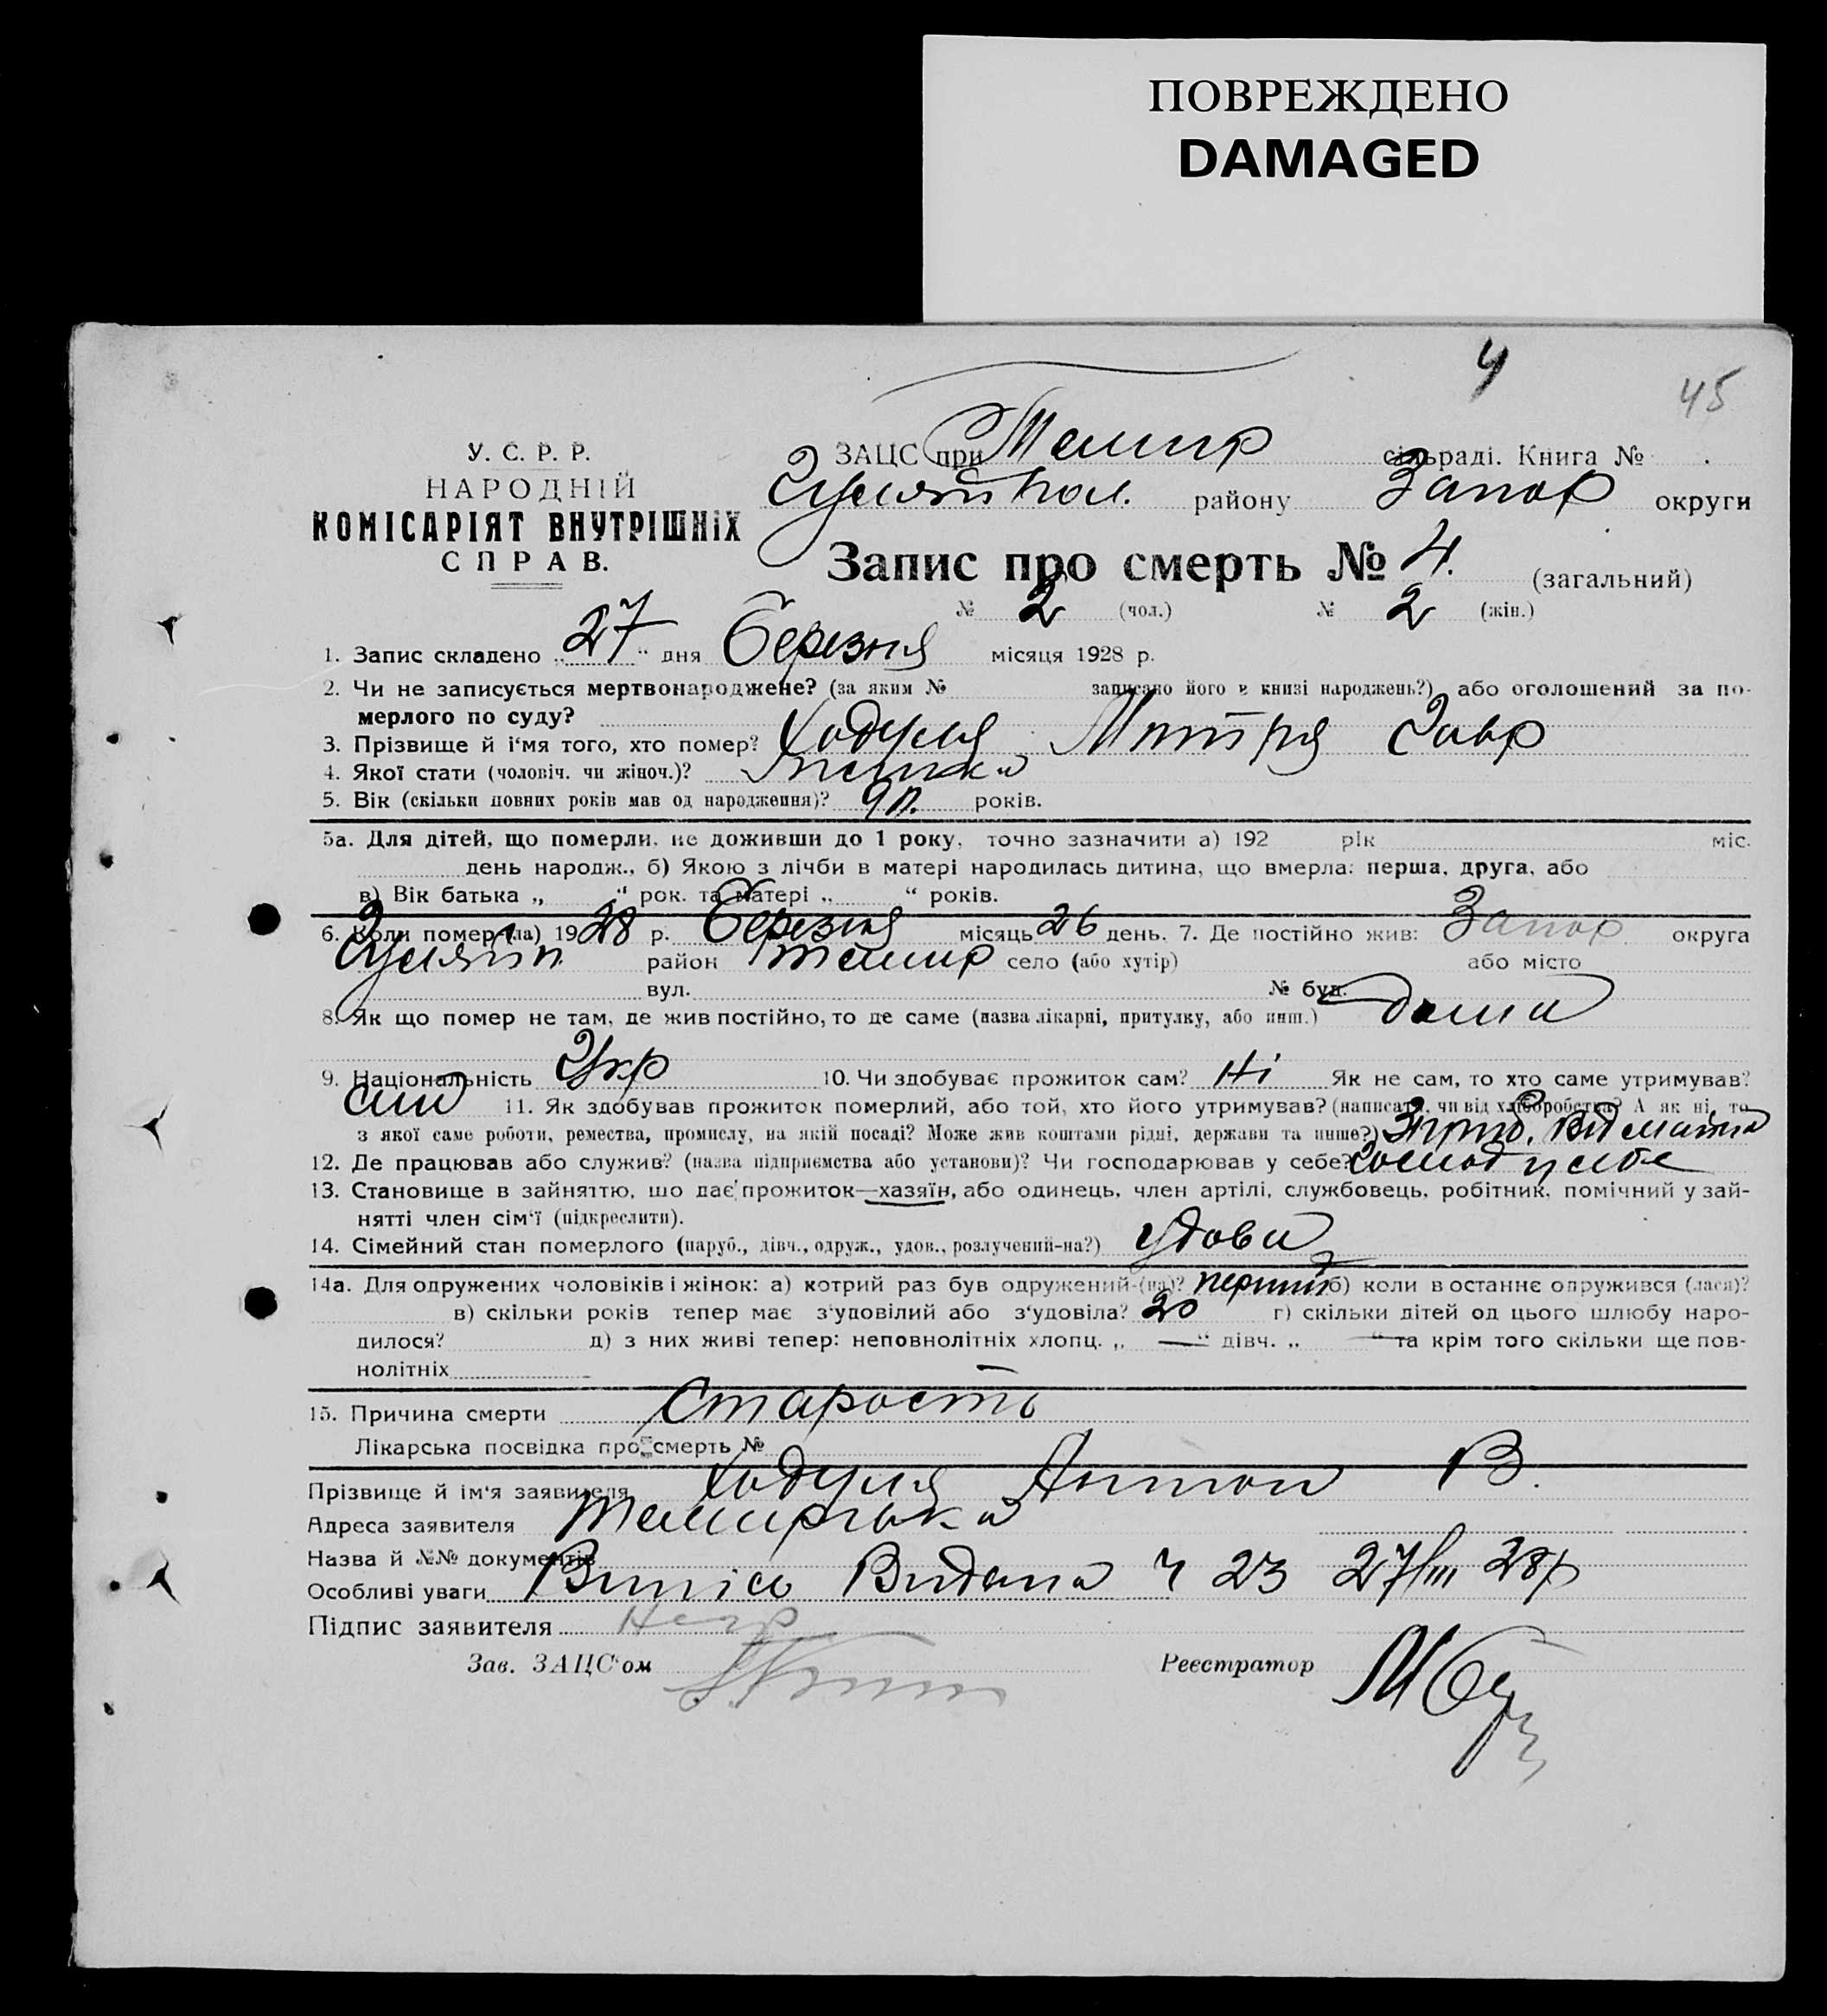 ПОВРЕЖДЕНО
DAMAGED
4
45
У. С. Р. Р.
НАРОДНІЙ
КОМІСАРІЯТ ВНУТРІШНІХ
СПРАВ.
ЗАЦС при Темир сільраді. Книга №
Гуляйпол. району Запор округи
Запис про смерть № 4. (загальний)
№ 2 (чол.) № 2 (жін.)
1. Запис складено „27“ дня Березня місяця 1928 р.
2. Чи не записується мертвонароджене? (за яким № записано його в книзі народжень?) або оголошений за по-
мерлого по суду?
3. Прізвище й і'мя того, хто помер? Ходуля
4. Якої стати (чоловіч. чи жіноч.)?
5. Вік (скільки повних років мав од народження)? років.
5а. Для дітей, що померли, не доживши до 1 року, точно зазначити а) 192 рік міс.
день народж., б) Якою з лічби в матері народилась дитина, що вмерла: перша, друга, або
в) Вік батька „ “ рок. та матері „ “ років.
6. Коли помер (ла) 1928 р. Березня місяць 26 день. 7. Де постійно жив: Запор округа
Гуляйп. район Темир село (або хутір) або місто
вул. № буд.
8. Як що помер не там, де жив постійно, то де саме (назва лікарні, притулку, або инш.) дома
9. Національність Укр 10. Чи здобуває прожиток сам? Ні Як не сам, то хто саме утримував?
син 11. Як здобував прожиток померлий, або той, хто його утримував? (написати, чи від хліборобства? А як ні, то
з якої саме роботи, ремества, промислу, на якій посаді? Може жив коштами рідні, держави та инше?)
12. Де працював або служив? (назва підприємства або установи)? Чи господарював у себе? у себе
13. Становище в зайняттю, що дає прожиток—хазяїн, або одинець, член артілі, службовець, робітник, помічний у зай-
нятті член сім'ї (підкреслити).
14. Сімейний стан померлого (паруб., дівч., одруж., удов., розлучений-на?) удова
14а. Для одружених чоловіків і жінок: а) котрий раз був одружений-(на)? перший б) коли в останнє одружився (лася)?
в) скільки років тепер має з'удовілий або з'удовіла? 20 г) скільки дітей од цього шлюбу наро-
дилося? д) з них живі тепер: неповнолітніх хлопц. „ —“ дівч. „ —“ та крім того скільки ще пов-
нолітніх
15. Причина смерти Старость
Лікарська посвідка про смерть №
Прізвище й ім'я заявителя Ходуля Антон В.
Адреса заявителя Темирівка
Назва й №№ документів
Особливі уваги Випісь Видана ч 23 27/III 28р
Підпис заявителя
Зав. ЗАЦС'ом Реєстратор